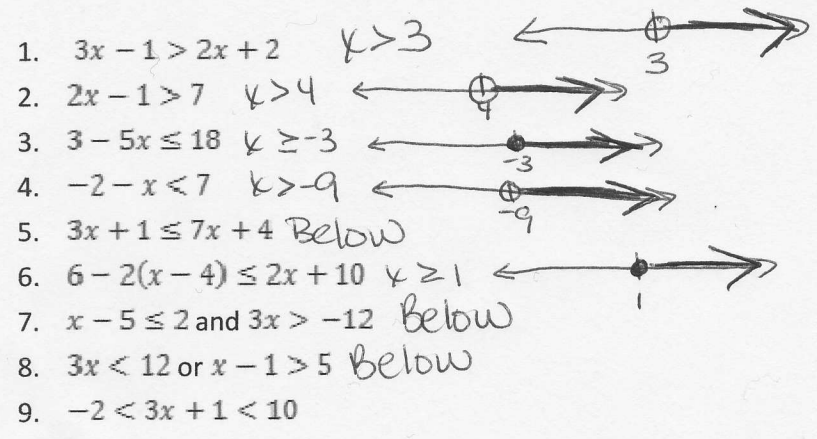 1. 3x − 1 > 2x + 2 x>3 3
2. 2x − 1 > 7 x>4 4
3. 3 − 5x ≤ 18 x ≥ -3 -3
4. −2 − x < 7 x>-9 -9
5. 3x + 1 ≤ 7x + 4 Below
6. 6 − 2(x − 4) ≤ 2x + 10 x ≥ 1 1
7. x − 5 ≤ 2 and 3x > −12 Below
8. 3x < 12 or x − 1 > 5 Below
9. −2 < 3x + 1 < 10